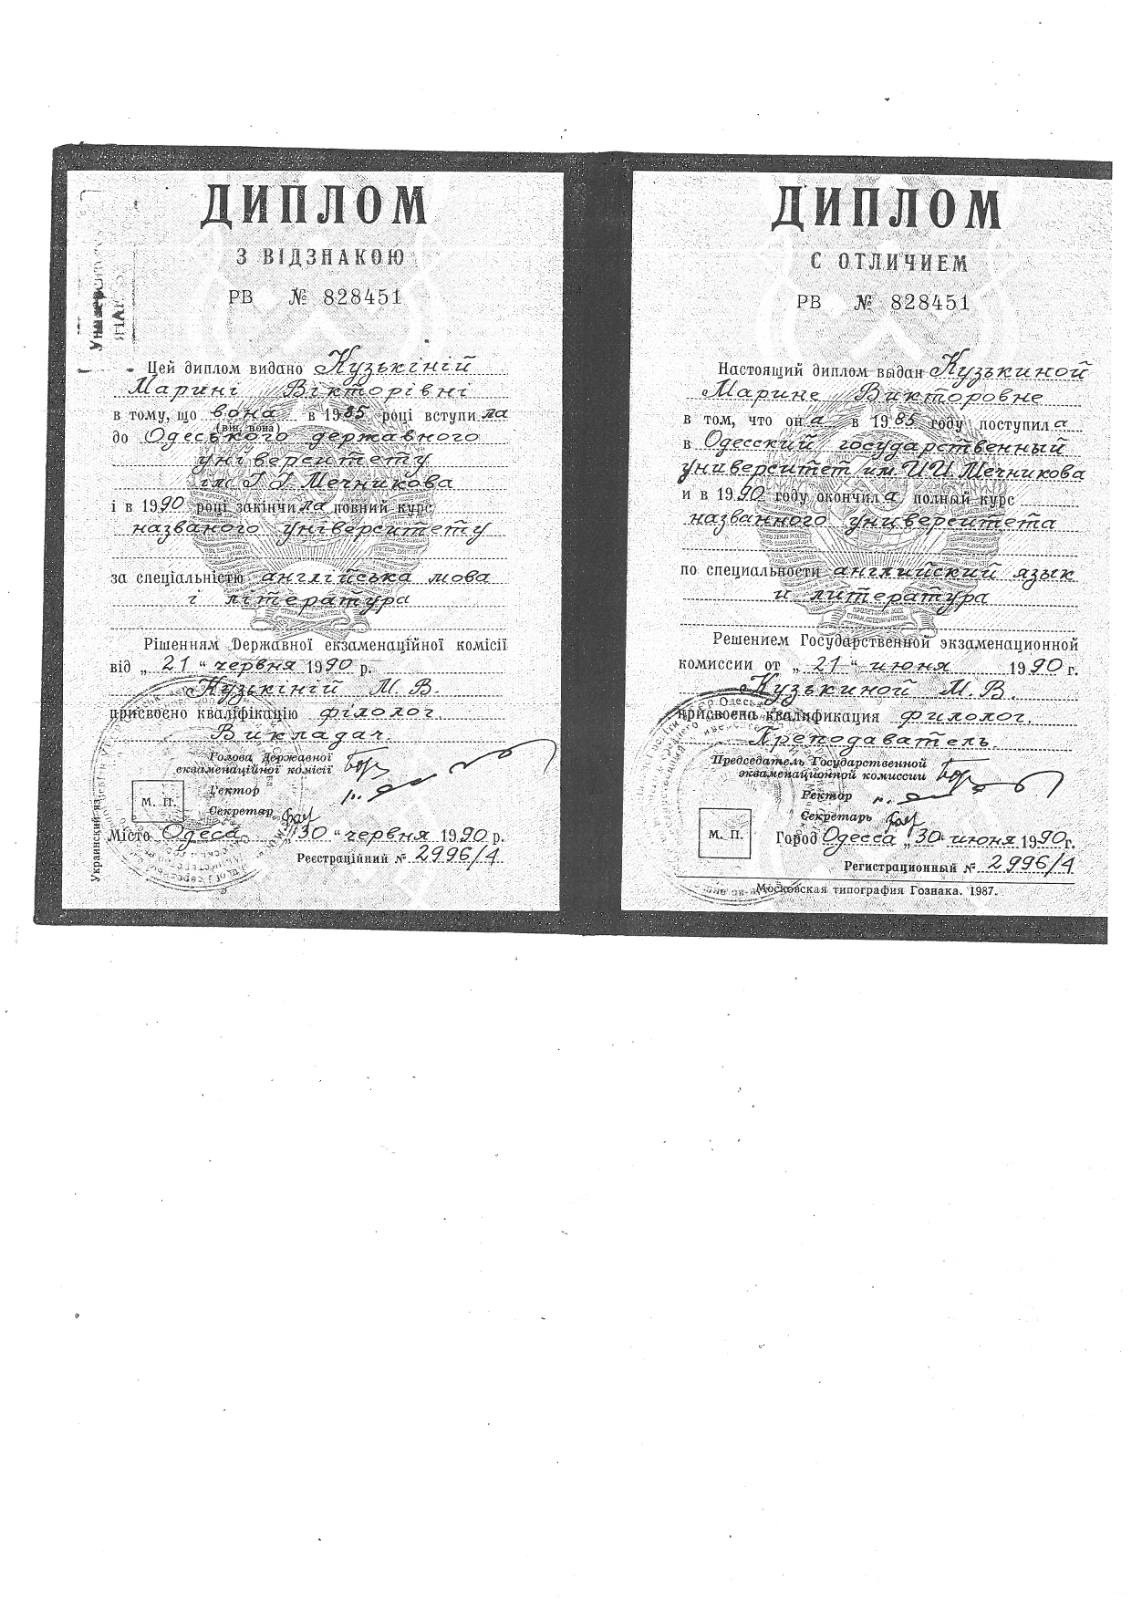 ДИПЛОМ
З ВІДЗНАКОЮ
РВ № 828451
Цей диплом видано Кузькіній
Марині Вікторівні
в тому, що вона в 1985 році вступила
(він, вона)
до Одеського державного
університету
ім. І. І. Мечникова
і в 1990 році закінчила повний курс
названого університету
за спеціальністю англійська мова
і література
Рішенням Державної екзаменаційної комісії
від „21“ червня 1990 р.
Кузькіній М. В.
присвоєно кваліфікацію філолог.
Викладач.
Голова Державної
екзаменаційної комісії
Ректор
М. П.
Секретар
Місто Одеса „30“ червня 1990 р.
Реєстраційний № 2996/4
Украинский на
ДИПЛОМ
С ОТЛИЧИЕМ
РВ № 828451
Настоящий диплом выдан Кузькиной
Марине Викторовне
в том, что она в 1985 году поступила
в Одесский государственный
университет им. И.И. Мечникова
и в 1990 году окончила полный курс
названного университета
по специальности английский язык
и литература
Решением Государственной экзаменационной
комиссии от „21“ июня 1990 г.
Кузькиной М. В.
присвоена квалификация филолог.
Преподаватель.
Председатель Государственной
экзаменационной комиссии
Ректор
Секретарь
М. П.
Город Одесса „30“ июня 1990 г.
Регистрационный № 2996/4
Московская типография Гознака. 1987.